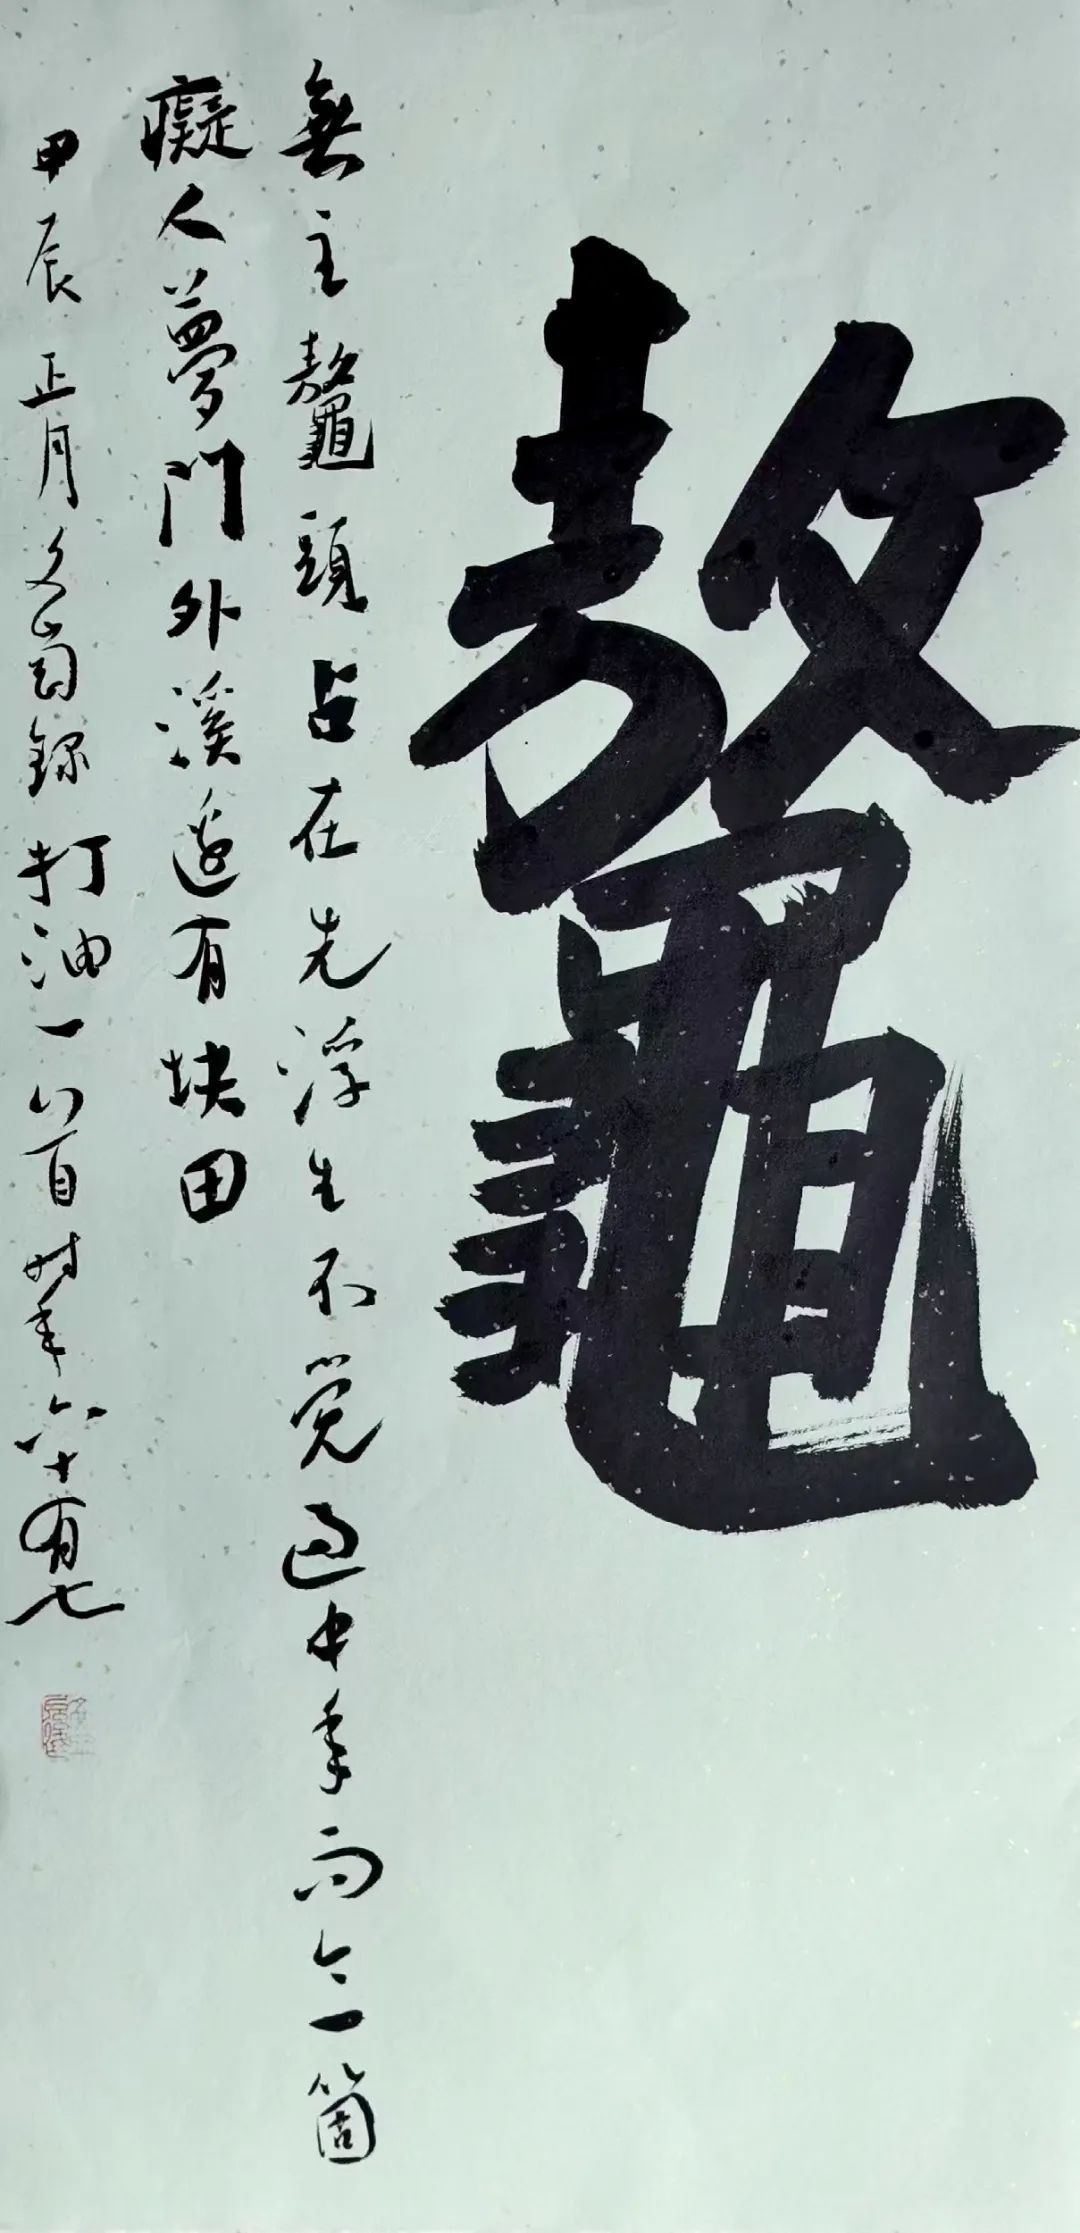 鼇
無主鼇頭占在先浮生不覺過中年而今一箇
癡人夢門外溪邊有塊田
甲辰正月文岗錄打油一首時年六十有七